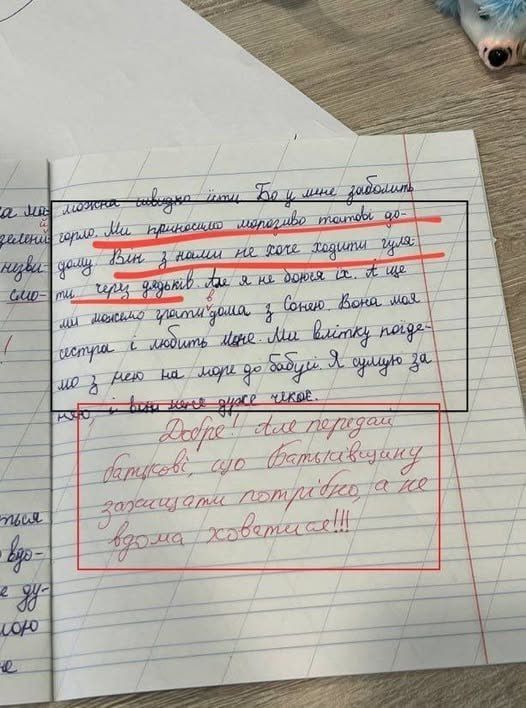 можна швидко їсти Бо у мене заболить
горло. Ми приносимо морозиво татові до-
дому. Він з нами не хоче ходити гуля-
ти через дядьків. Але я не боюся їх. А ще
ми можемо грати в дома з Сонею. Вона моя
сестра і любить мене. Ми влітку поїде-
мо з нею на море до бабусі. Я сумую за
нею, і вона мене дуже чекає.
Добре! Але передай
батькові, що Батьківщину
захищати потрібно, а не
вдома ховатися!!!
зелений
незви
смо-
!
ться
вдо-
ду-
мою
не